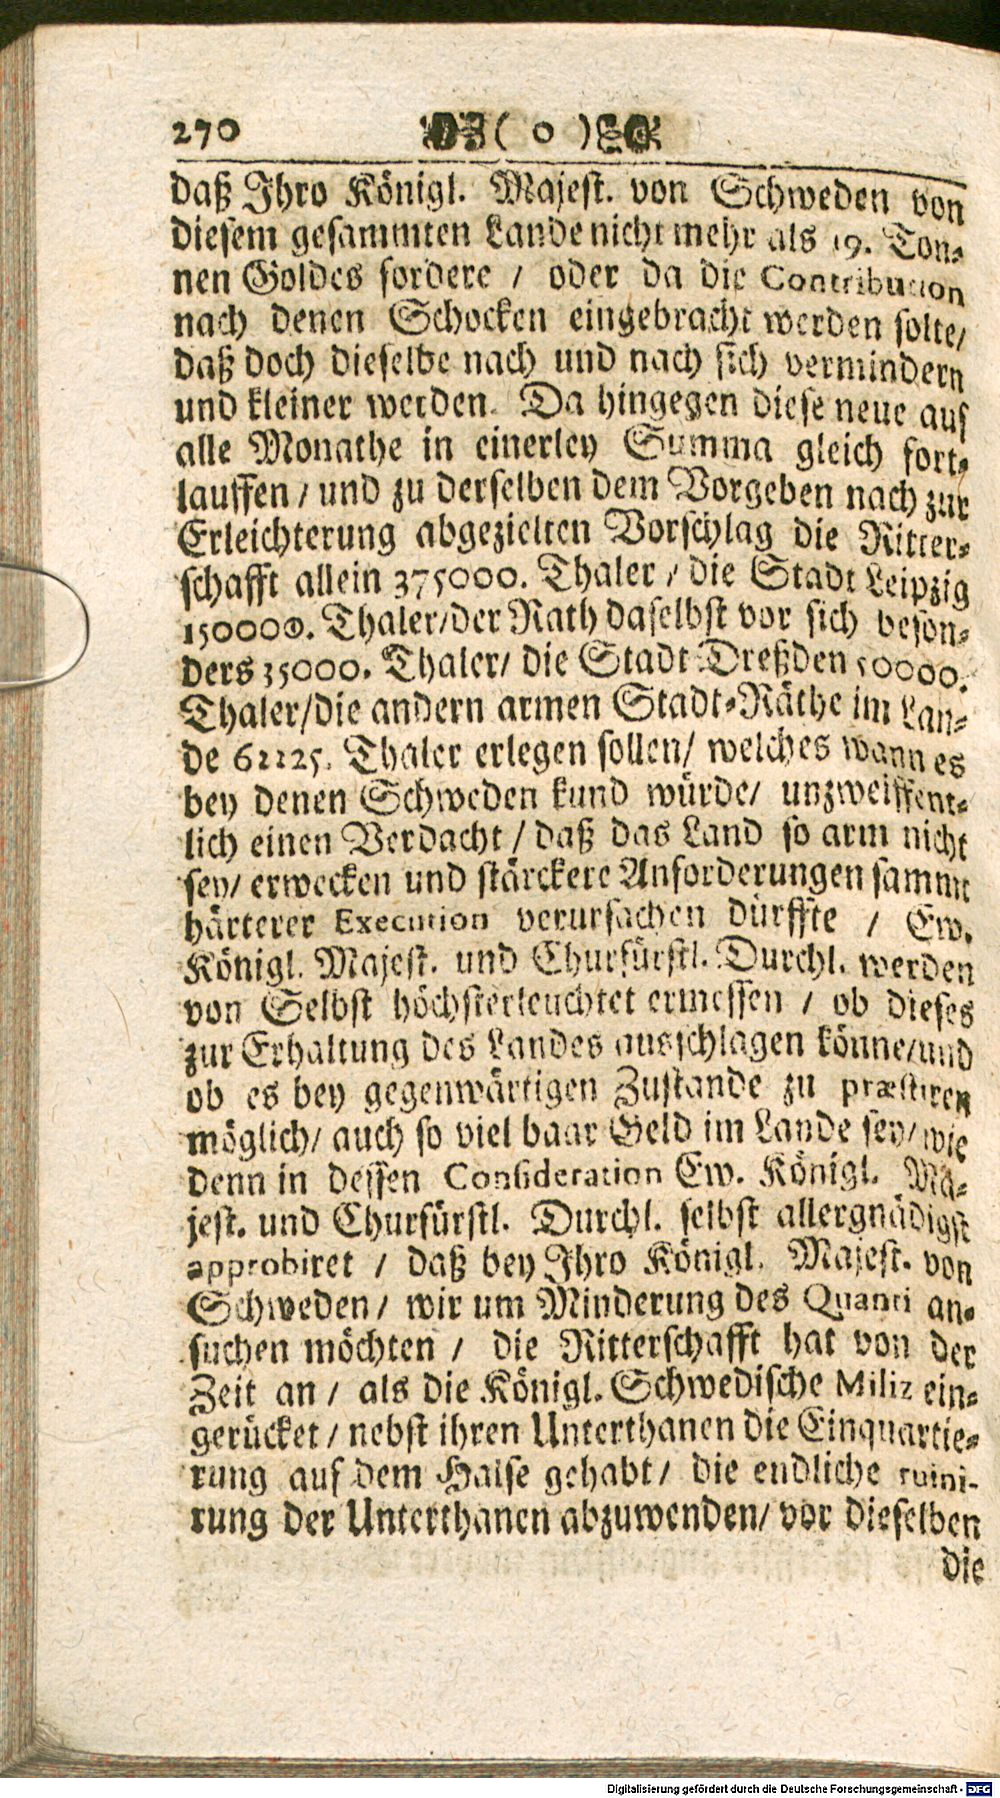 270 ( o )
daß Ihro Königl. Majest. von Schweden von
diesem gesammten Lande nicht mehr als 19. Ton-
nen Goldes fordere / oder da die Contribution
nach denen Schocken eingebracht werden solte/
daß doch dieselbe nach und nach sich vermindern
und kleiner werden. Da hingegen diese neue auf
alle Monathe in einerley Summa gleich fort-
lauffen / und zu derselben dem Vorgeben nach zur
Erleichterung abgezielten Vorschlag die Ritter-
schafft allein 375000. Thaler / die Stadt Leipzig
150000. Thaler/der Rath daselbst vor sich beson-
ders 35000. Thaler/ die Stadt Dreßden 50000.
Thaler/die andern armen Stadt-Räthe im Lan-
de 62225. Thaler erlegen sollen/ welches wann es
bey denen Schweden kund würde/ unzweiffent-
lich einen Verdacht / daß das Land so arm nicht
sey/ erwecken und stärckere Anforderungen sammt
härterer Execution verursachen dürffte / Ew.
Königl. Majest. und Churfürstl. Durchl. werden
von Selbst höchsterleuchtet ermessen / ob dieses
zur Erhaltung des Landes ausschlagen könne/und
ob es bey gegenwärtigen Zustande zu præstiren
möglich/ auch so viel baar Geld im Lande sey/ wie
denn in dessen Consideration Ew. Königl. Ma-
jest. und Churfürstl. Durchl. selbst allergnädigst
approbiret / daß bey Ihro Königl. Majest. von
Schweden / wir um Minderung des Quanti an-
suchen möchten / die Ritterschafft hat von der
Zeit an / als die Königl. Schwedische Miliz ein-
gerücket / nebst ihren Unterthanen die Einquartie-
rung auf dem Halse gehabt / die endliche ruini-
rung der Unterthanen abzuwenden/ vor dieselben
die
Digitalisierung gefördert durch die Deutsche Forschungsgemeinschaft - DFG